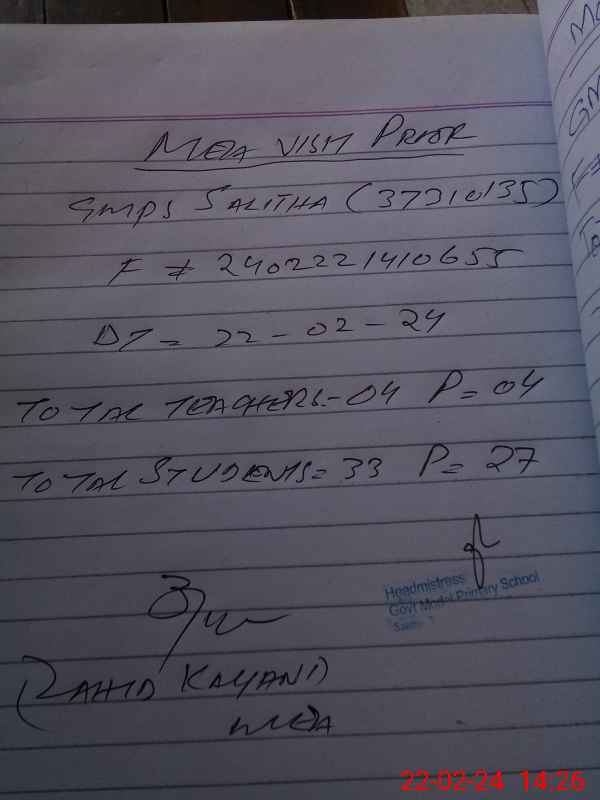 MEA VISIT PROOF
GMPS SALITHA (37310135)
F # 2402221410655
DT = 22-02-24
TOTAL TEACHERS = 04 P = 04
TOTAL STUDENTS = 33 P = 27
Headmistress
Govt Model Primary School
KAYANI
MEA
22-02-24 14:26